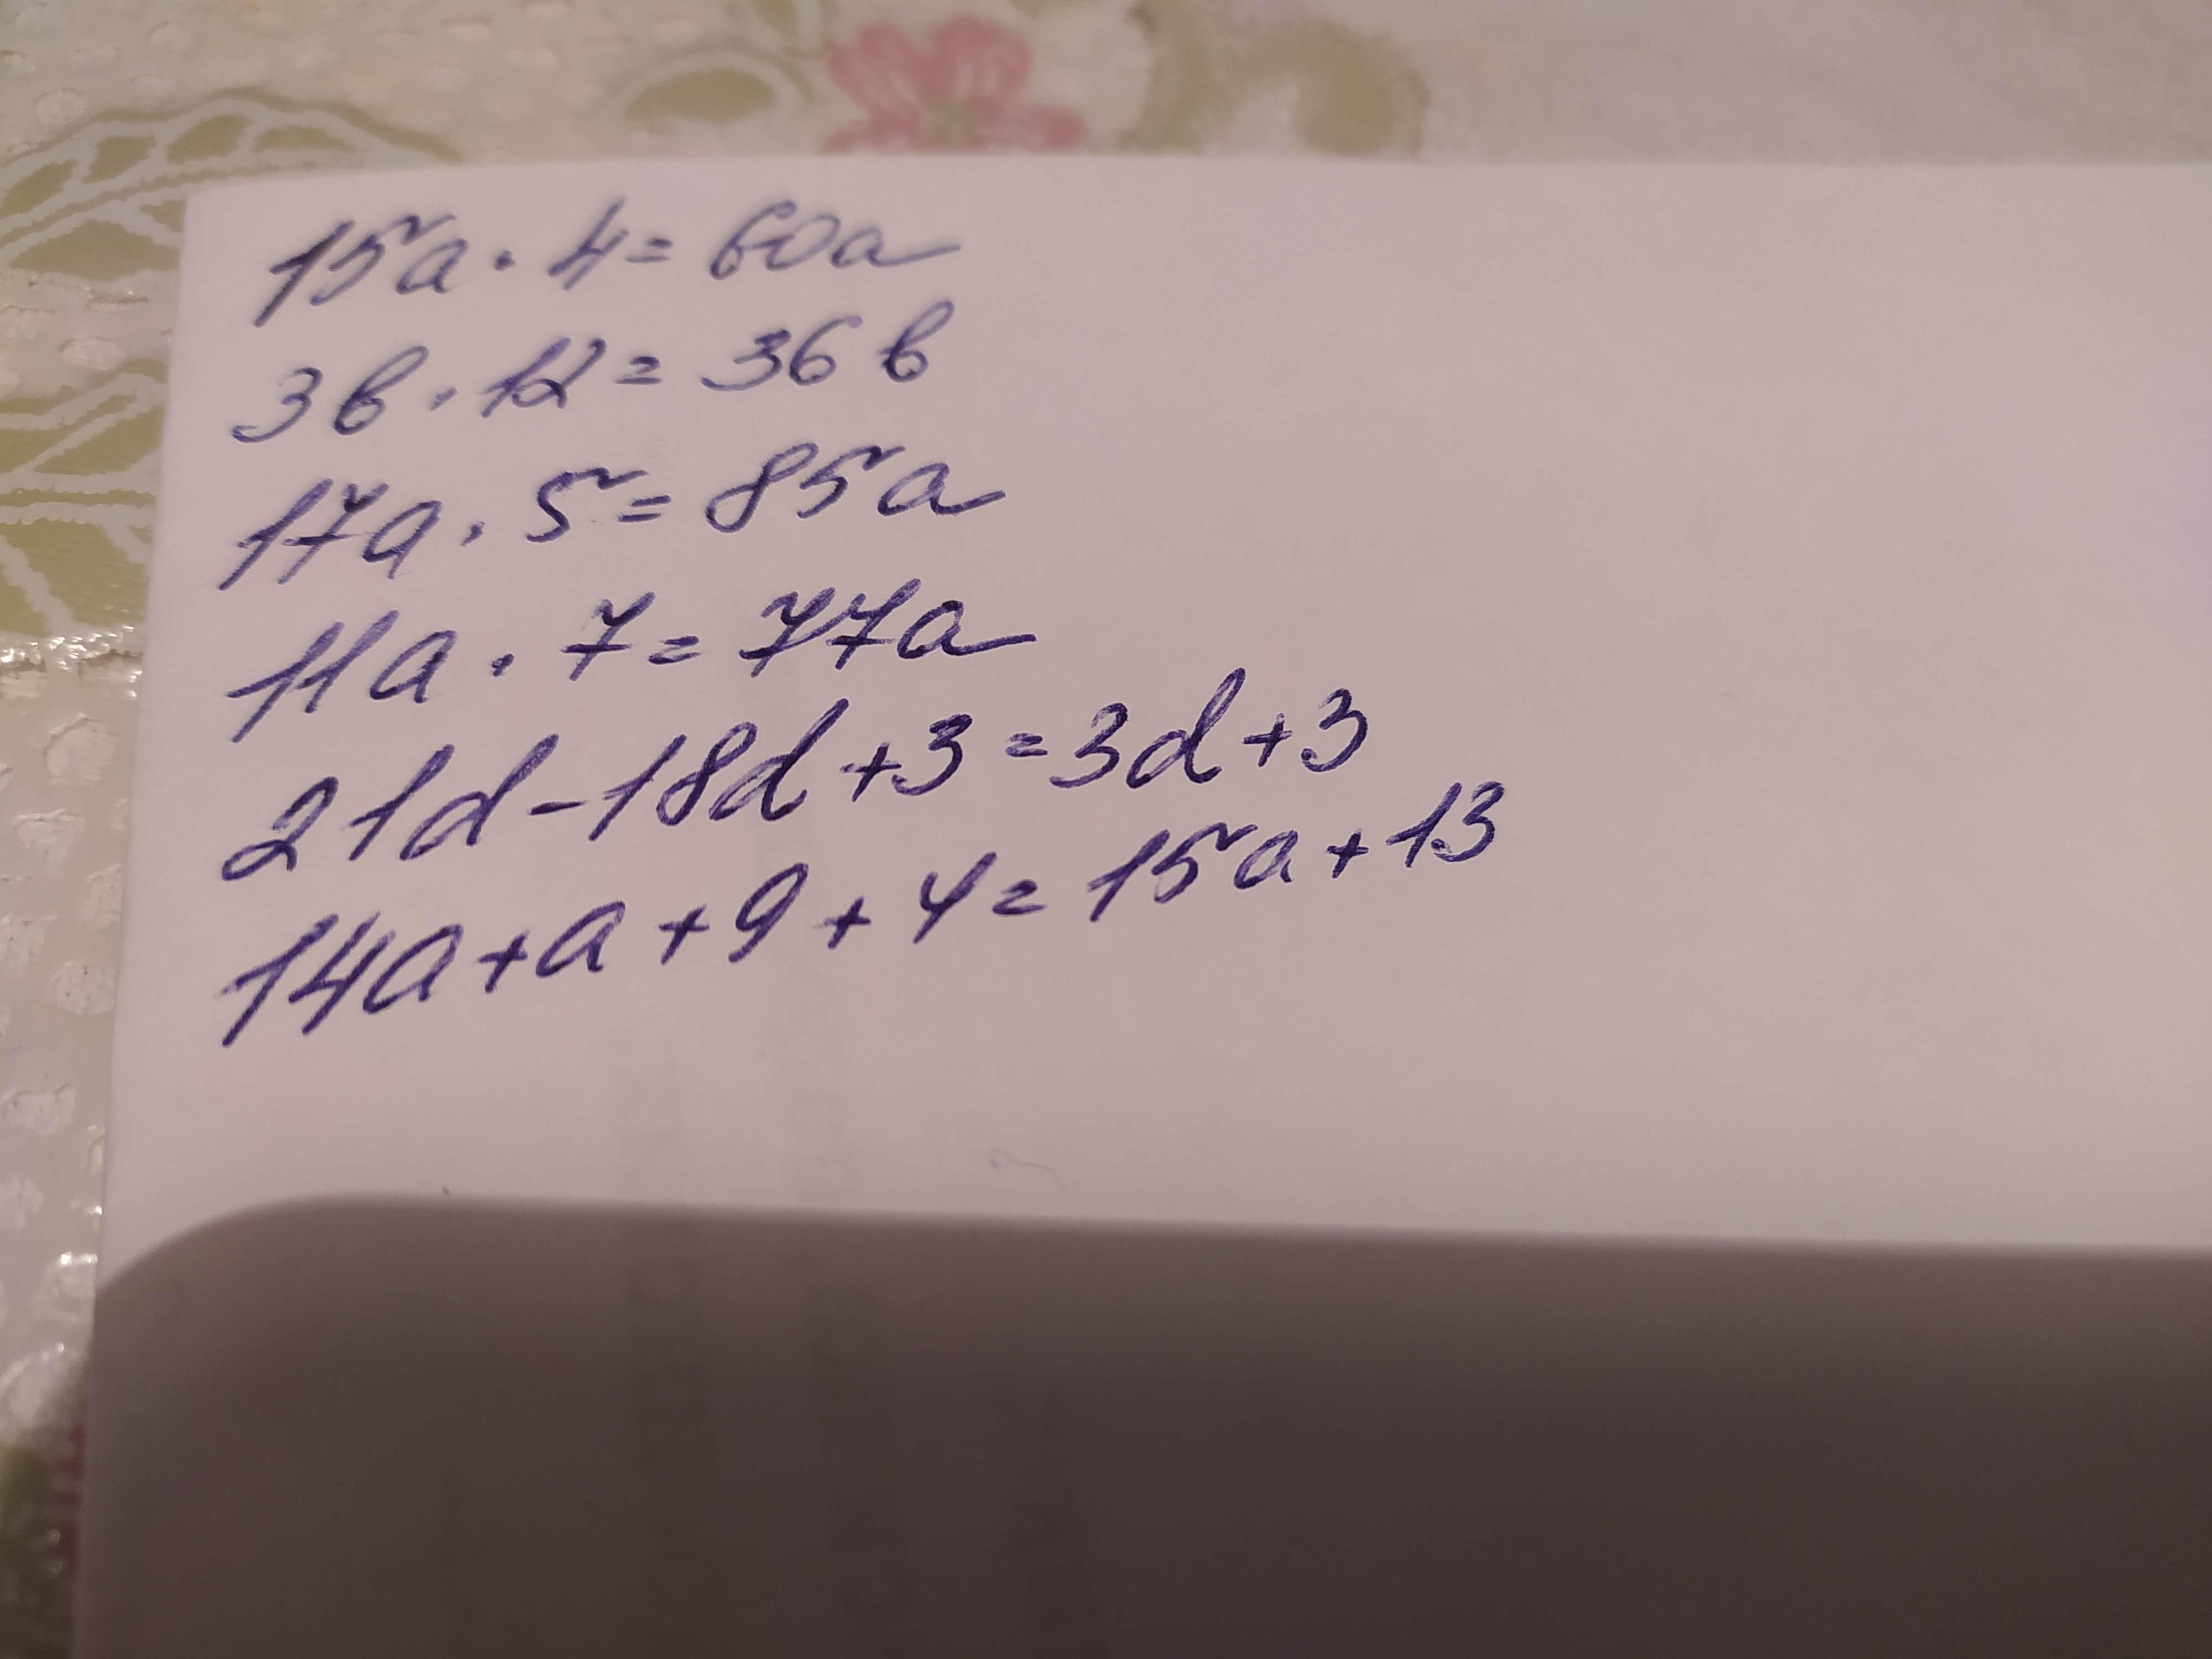 15a · 4 = 60a
3b · 12 = 36b
17a · 5 = 85a
11a · 7 = 77a
21d - 18d + 3 = 3d + 3
14a + a + 9 + 4 = 15a + 13